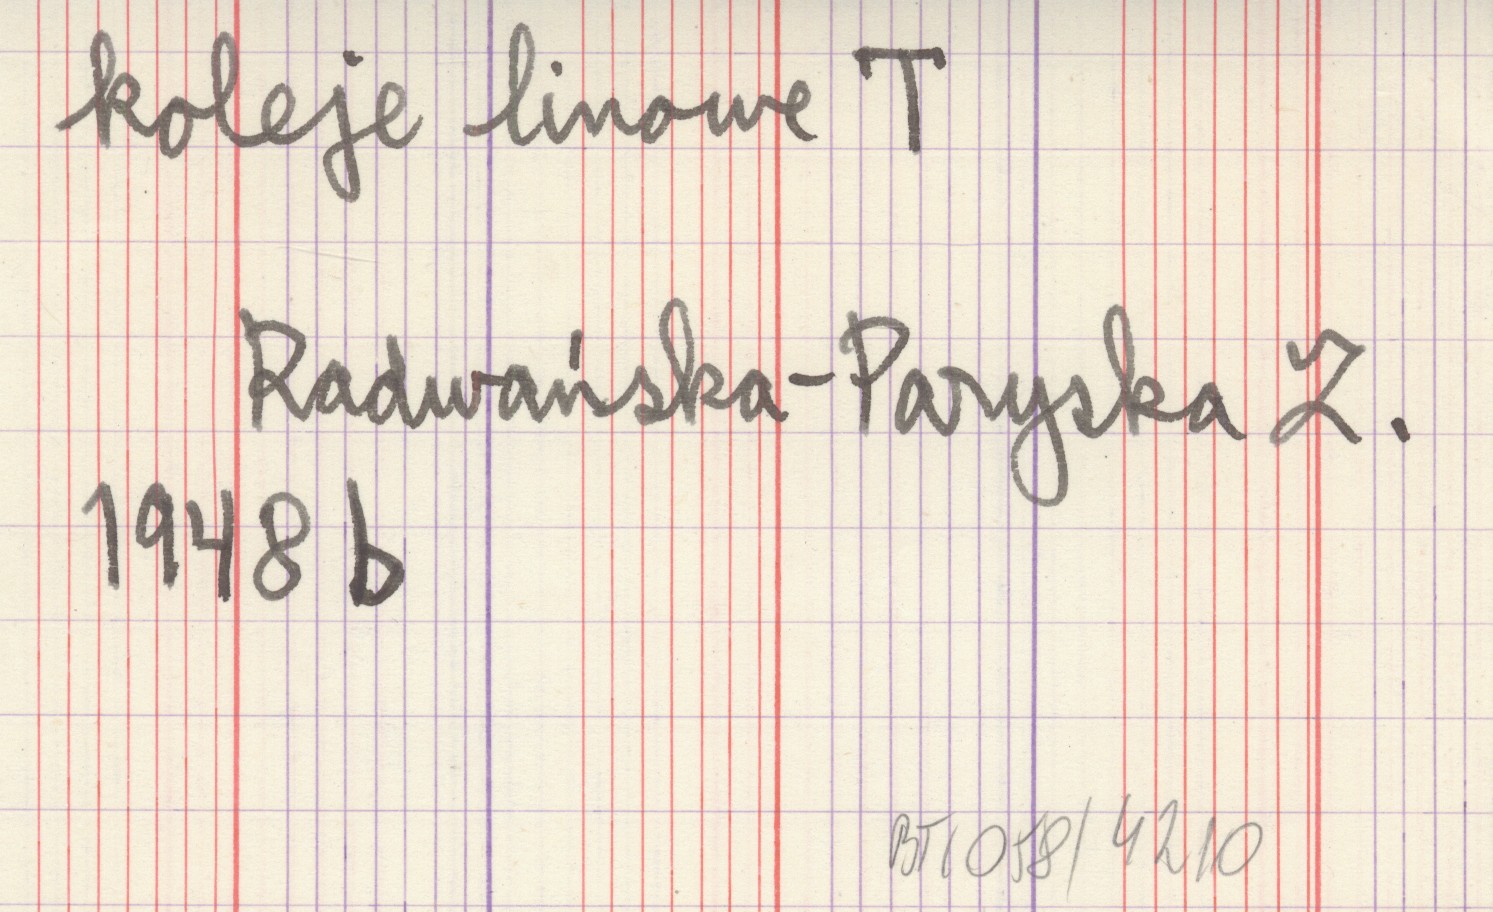 koleje linowe T
Radwańska-Paryska Z.
1948 b
058/4210